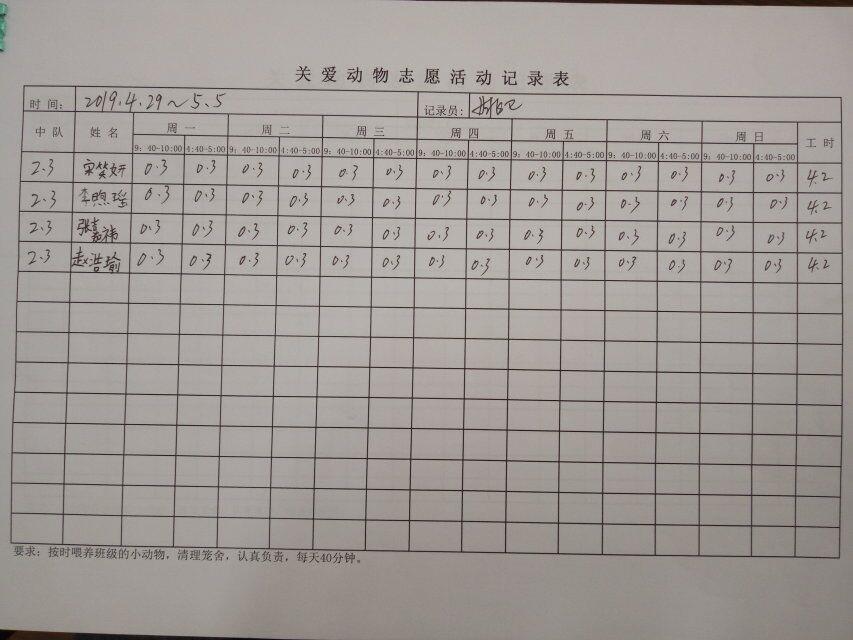 关爱动物志愿活动记录表
时间: 2019.4.29~5.5 记录员:
中队 姓名 周一 周二 周三 周四 周五 周六 周日 工时
9：40-10:00 4:40-5:00 9：40-10:00 4:40-5:00 9：40-10:00 4:40-5:00 9：40-10:00 4:40-5:00 9：40-10:00 4:40-5:00 9：40-10:00 4:40-5:00 9：40-10:00 4:40-5:00
2.3 宋笑妍 0.3 0.3 0.3 0.3 0.3 0.3 0.3 0.3 0.3 0.3 0.3 0.3 0.3 0.3 4.2
2.3 李煦瑶 0.3 0.3 0.3 0.3 0.3 0.3 0.3 0.3 0.3 0.3 0.3 0.3 0.3 0.3 4.2
2.3 张嘉祎 0.3 0.3 0.3 0.3 0.3 0.3 0.3 0.3 0.3 0.3 0.3 0.3 0.3 0.3 4.2
2.3 赵浩瑜 0.3 0.3 0.3 0.3 0.3 0.3 0.3 0.3 0.3 0.3 0.3 0.3 0.3 0.3 4.2
要求：按时喂养班级的小动物，清理笼舍，认真负责，每天40分钟。